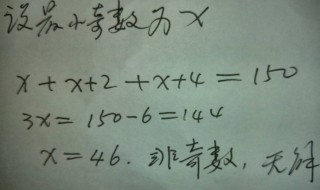 设最小奇数为x
x+x+2+x+4=150
3x=150-6=144
x=46. 非奇数,无解